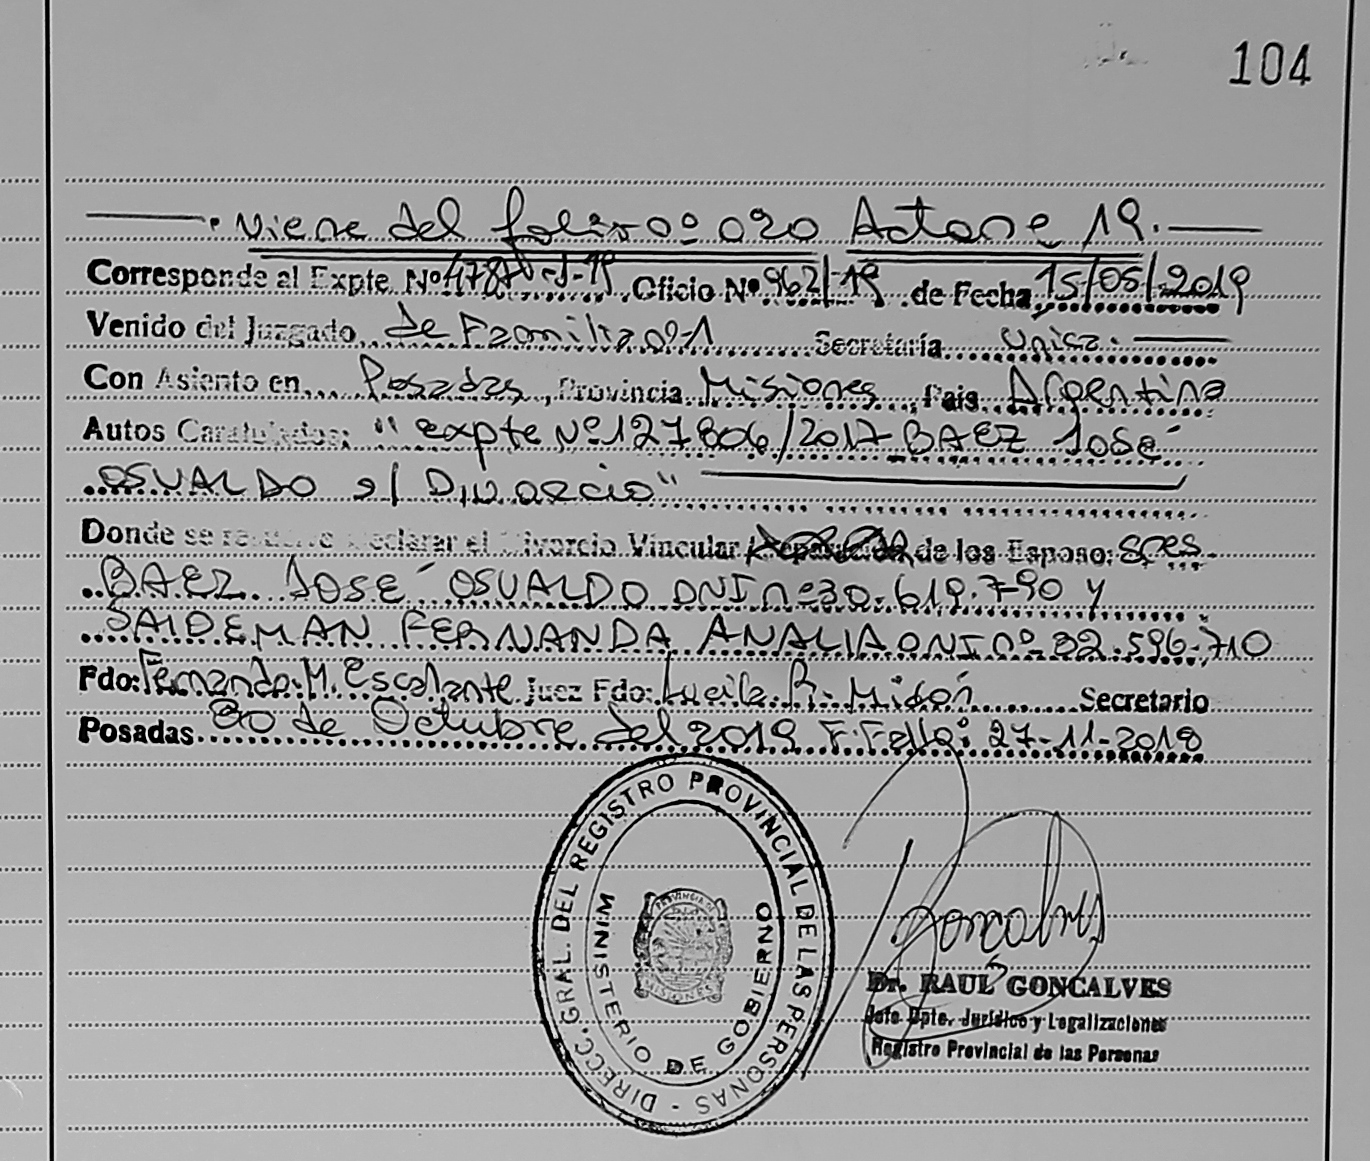 104
Viene del folio nº 020 Acta nº 19.
Corresponde al Expte. Nº 4787 -J-19 Oficio Nº 962/19 de Fecha 15/05/2019
Venido del Juzgado de Familia nº 1 Secretaría única.
Con Asiento en Posadas, Provincia Misiones, Pais Argentina
Autos Caratulados: "expte Nº 127806/2017 BAEZ José
OSVALDO s/ Divorcio"
Donde se resuelve Declarar el Divorcio Vincular de los Esposo: Spes.
BAEZ José OSVALDO DNI nº 30.619.790 y
SAIDEMAN FERNANDA ANALIA DNI nº 32.596.710
Fdo: Fernando M. Escalante Juez Fdo: Lucila R. Midón Secretario
Posadas 30 de Octubre del 2019 F. Fallo: 27-11-2018
DIRECC. GRAL. DEL REGISTRO PROVINCIAL DE LAS PERSONAS -
MINISTERIO DE GOBIERNO
MISIONES
Goncalves
Dr. RAUL GONCALVES
Jefe Dpto. Jurídico y Legalizaciones
Registro Provincial de las Personas